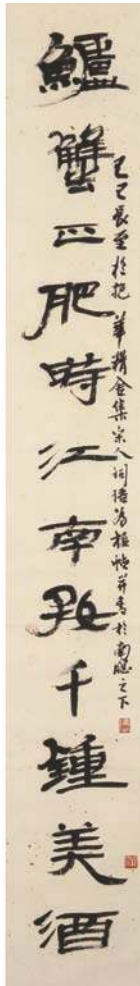 鱸蟹正肥時江南好千鍾美酒
己巳長至於挹華精舍集宋人詞語為楹帖并書於南牕之下